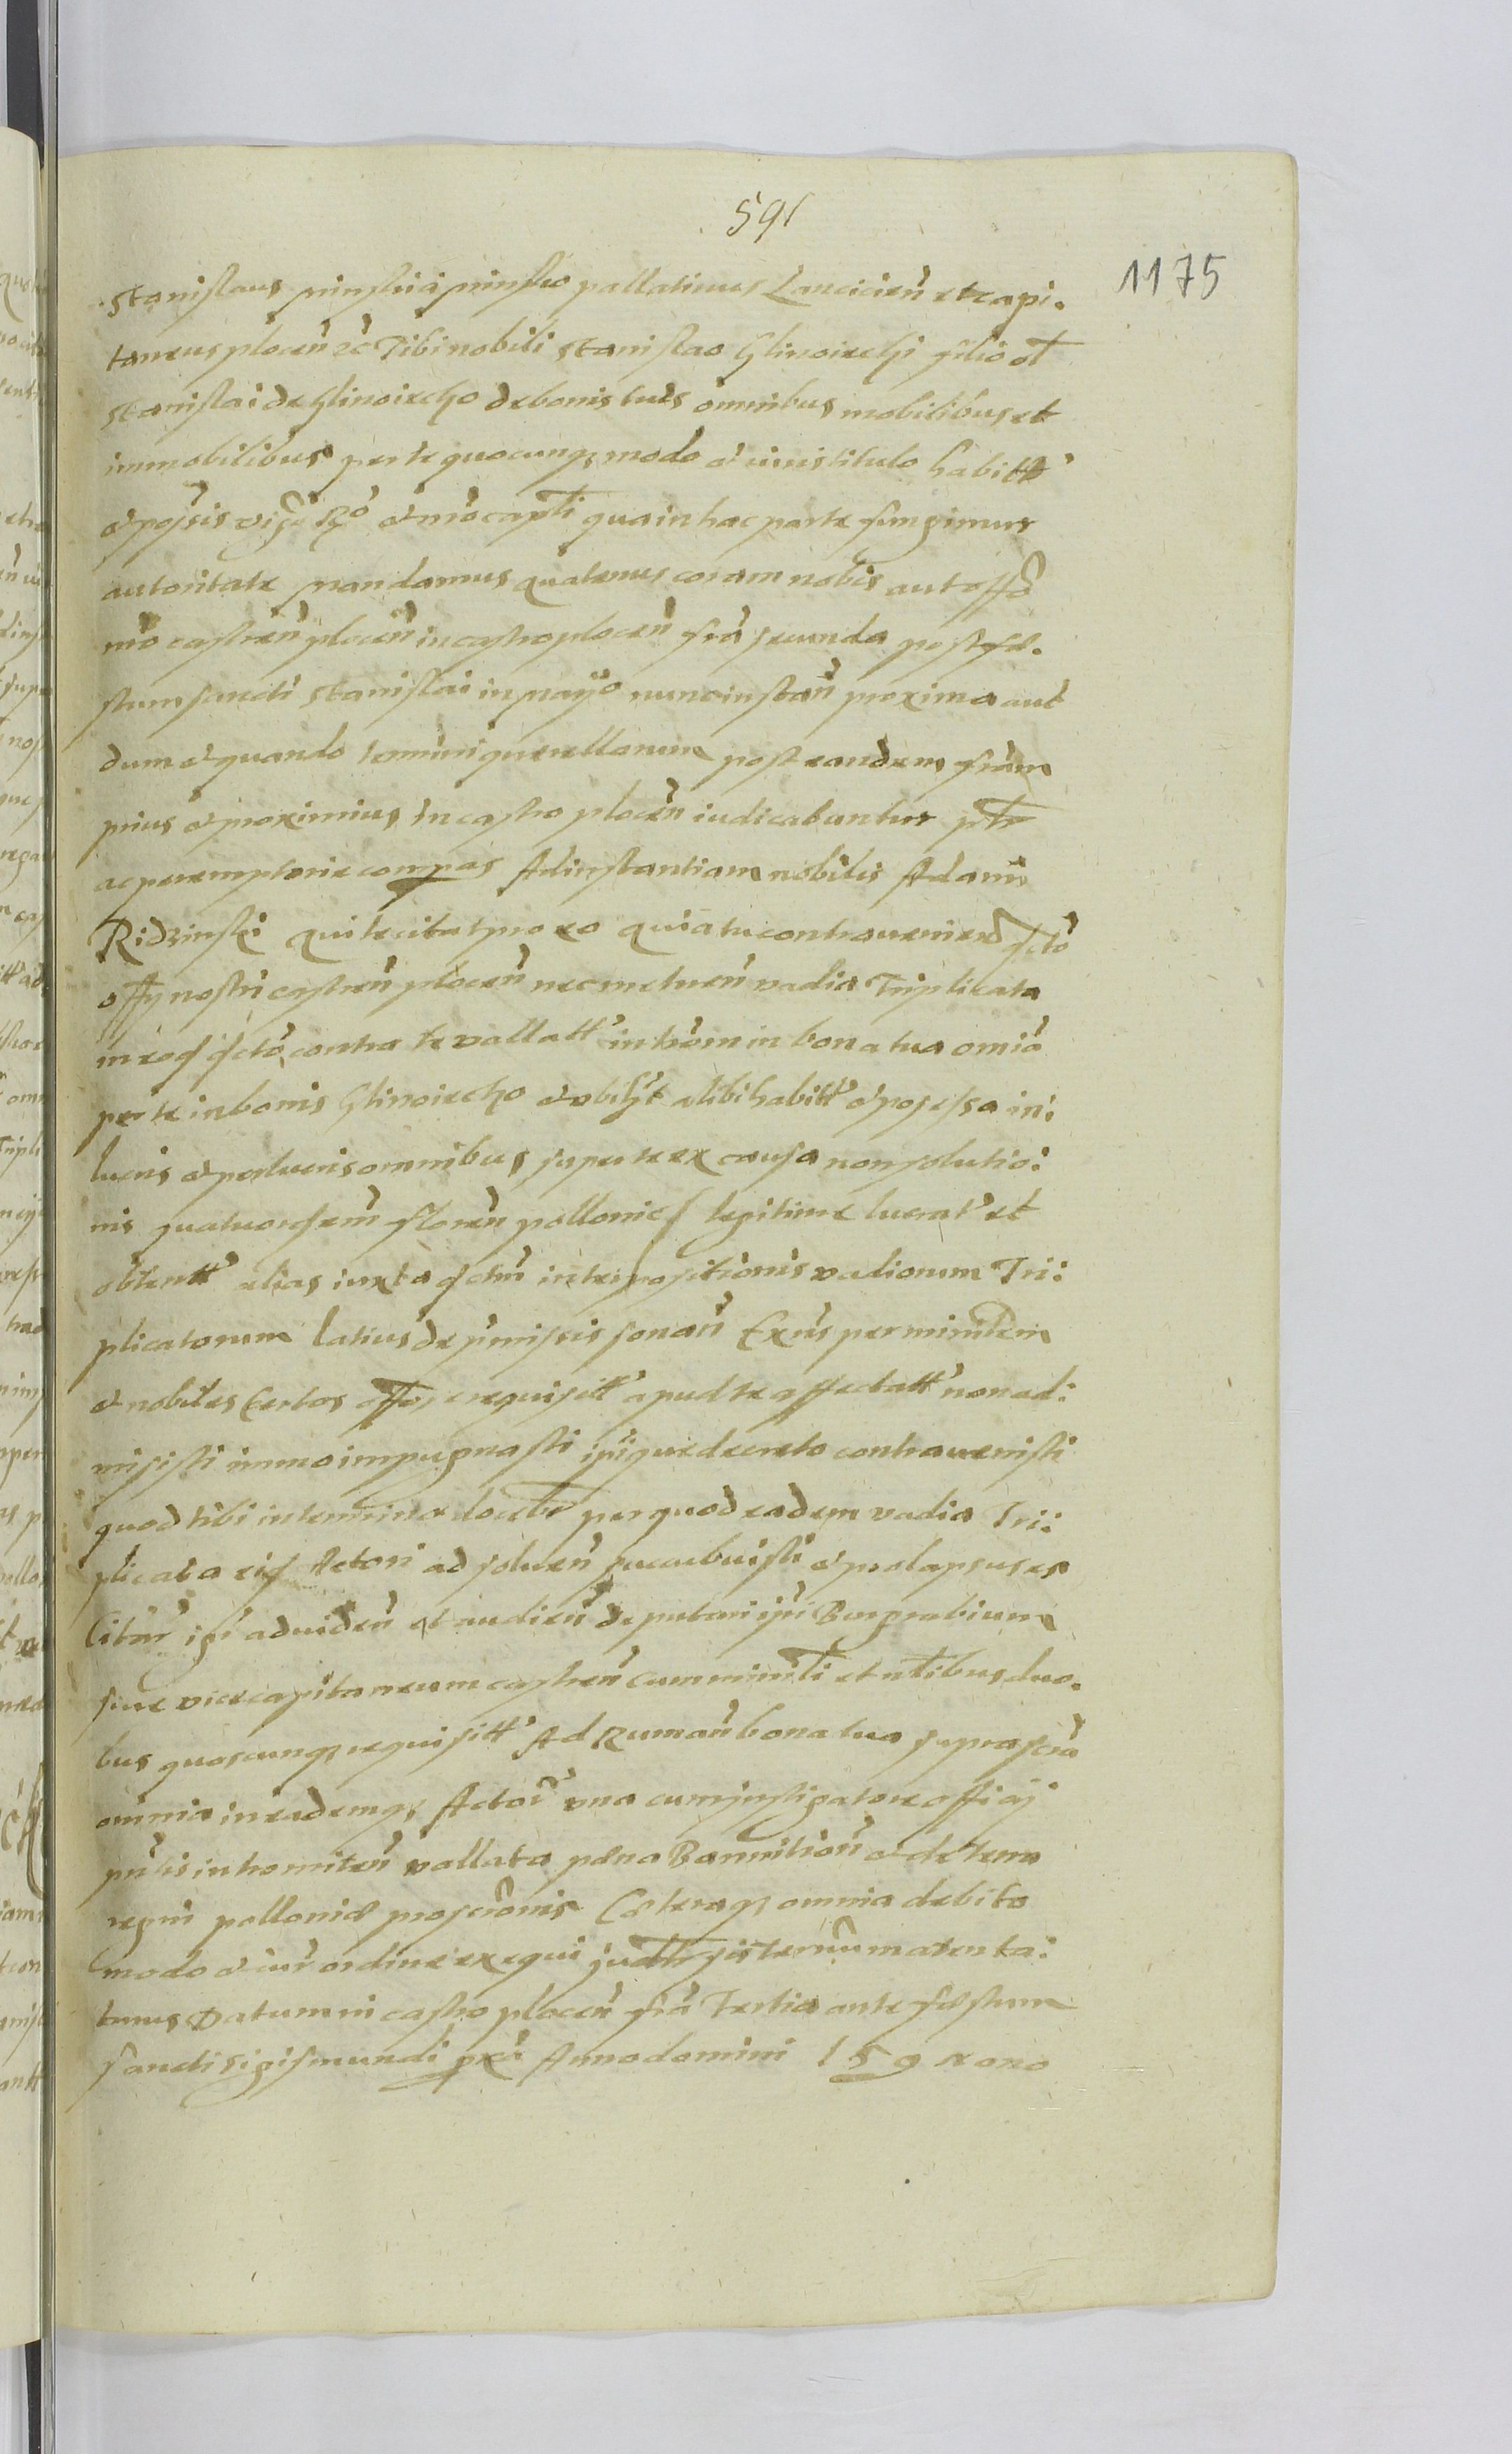 591
1175
Stanislaus minskij a minsko pallatinus Lancicień et capi.
taneus plocen̄ zc̄ Tibi nobili Stanislao Glinoiecky filio ol̄
Stanislai de Glinoiecko de bonis tuis omnibus mobilibus et
immobilibus per te quocunqz modo et iuris titulo habitt
et possis vig rgo et mō capli qua in hac parte fungimur
autoritate mandamus quatenus coram nobis aut offō
nrō castren̄ plocen̄ in castro plocen̄ fria secunda post fe.
stum sancti Stanislai in Mayo nunc instan̄ proxima aut
dum et quando termini querellarum post eandem friam
prius et proximius in castro plocen̄ iudicabuntur pltr
ac peremptorie compās Ad instantiam nobilis Adami
Ridzinski qui te citat pro eo quia tu contravenien̄ dcto
offy nostri castren̄ plocen̄ nec metuen̄ vadia Triplicata
in eod dcto contra te vallatt introm in bona tua omia
per te in bonis Glinoiecko et ubilt alibi habitt et possessa in:
lucris et perlucris omnibus super te ex causa non solutio:
nis quatuordecim floren̄ pollonic legitime lucrat et
obtentt alias iuxta dctum interpositionis vadiorum Tri:
plicatorum latius de pmissis sonan̄ Ex tūs per ministrem
et nobiles certos offō requisitt apud te affectatt non ad:
misisti immo impugnasti ipique decreto contravenisti
quod tibi in termino docebr per quod eadem vadia Tri:
plicata eid Actori ad solven̄ succubuisti et prolapsus es
Citar igr ad viden̄ et audien̄ deputari ipsi Burgrabium
sive vicecapitaneum castren̄ cum ministli et nlibus duo.
bus quoscunqz requisitt Ad Ruman̄ bona tua suprascta
omnia in eademqz Actor una cum instigatore officij
pntis intromitten̄ vallata pena Bannition̄ et de terra
regni polloniæ proscronis Cæteraqz omnia debito
modo et iur ordine exequi judtr sis terminū attenta:
turus Datum in castro plocen̄ fria Tertia ante festum
sancti Sigismundi pxā Anno domini 159 nono